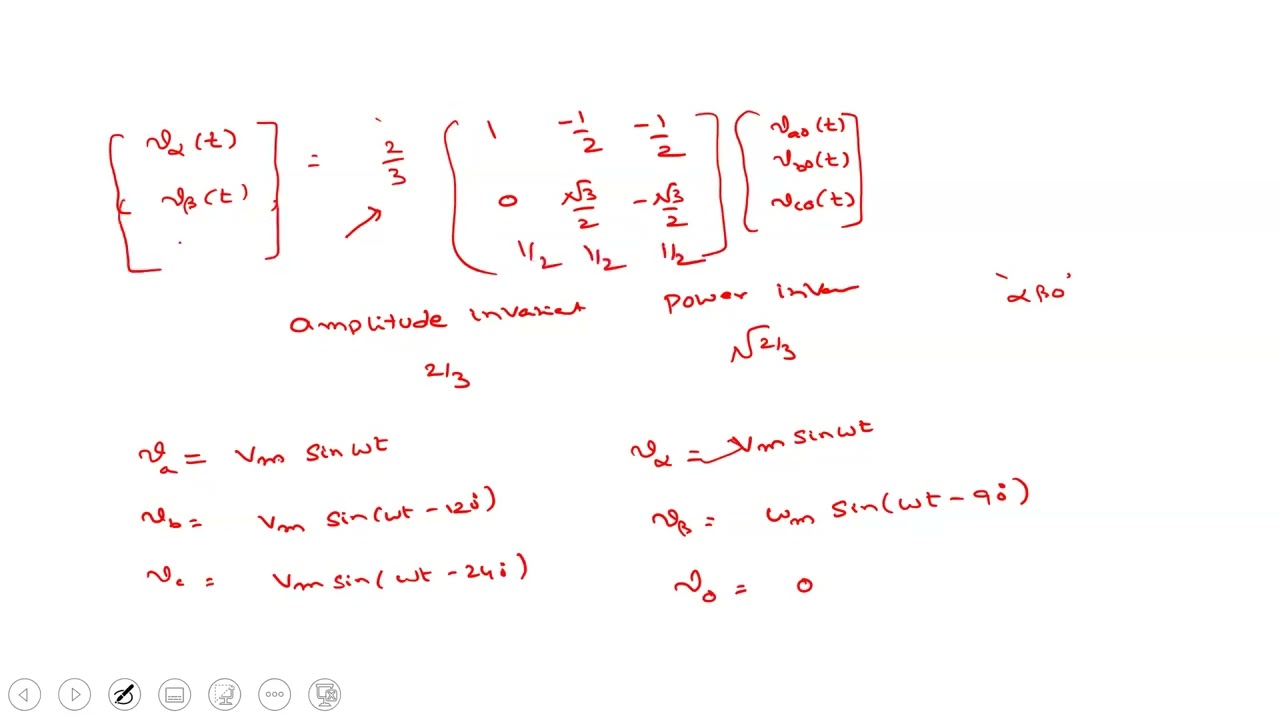 [ v_α(t) ; v_β(t) ] = 2/3 [ 1 -1/2 -1/2 ; 0 √3/2 -√3/2 ; 1/2 1/2 1/2 ] [ v_a0(t) ; v_b0(t) ; v_c0(t) ]
'αβ0'
amplitude invariant power inva
2/3 √2/3
v_a = Vm sin ωt
v_b = Vm sin(ωt - 120°)
v_c = Vm sin(ωt - 240°)
v_α = Vm sin ωt
v_β = ωm sin(ωt - 90°)
v_0 = 0